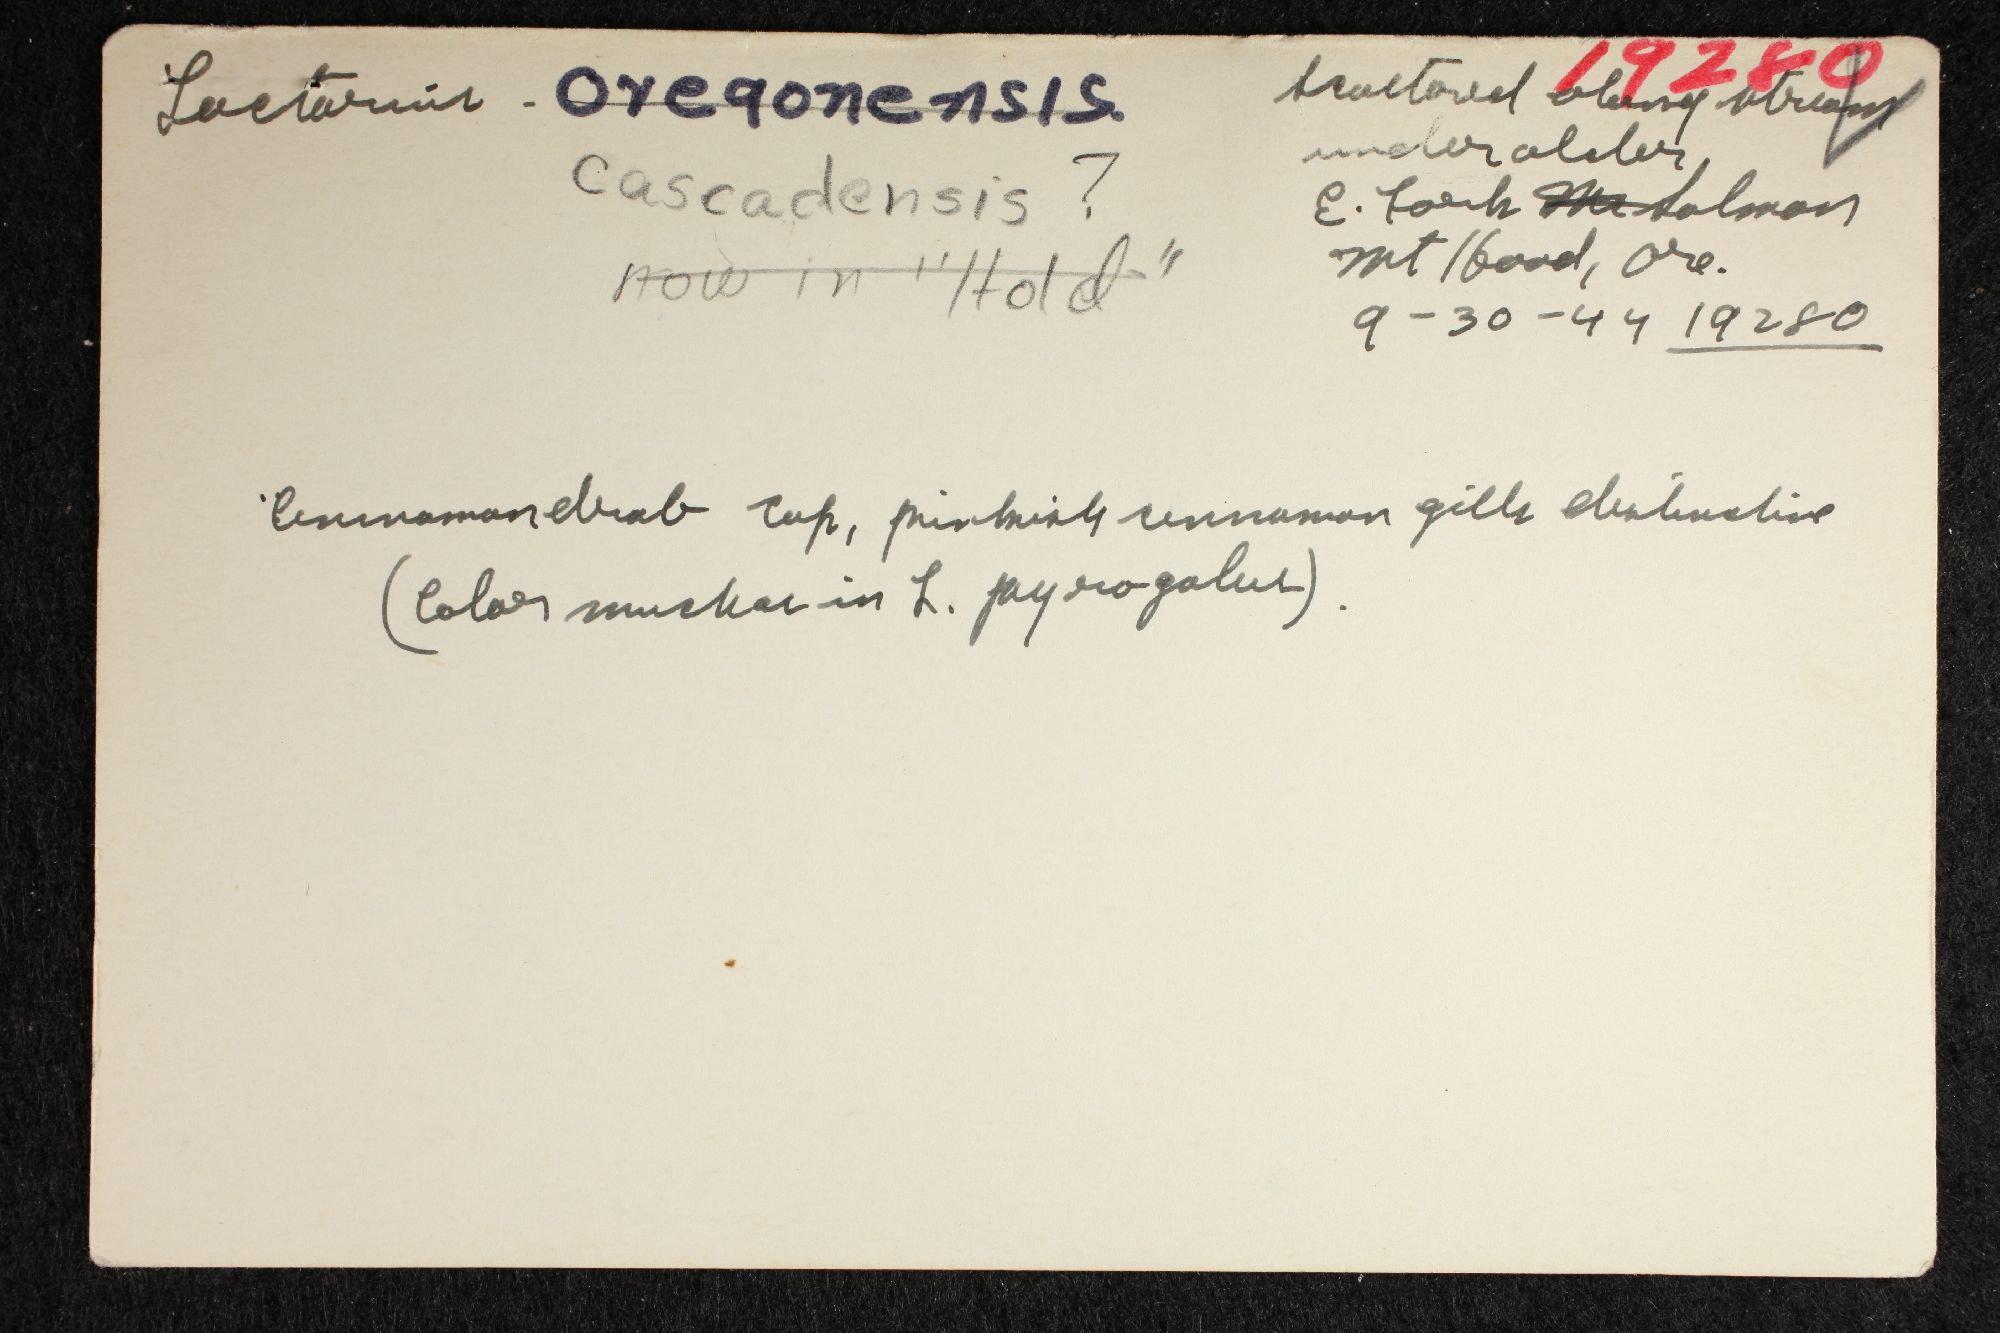 Lactarius - Oregonensis.
cascadensis ?
now in "Hold"
19280
scattered along stream
under alder,
E. Fork Salmon
Mt Hood, Ore.
9-30-44 19280
Cinnamon drab cap, pinkish cinnamon gills distinctive
(Color much as in L. pyrogalus).